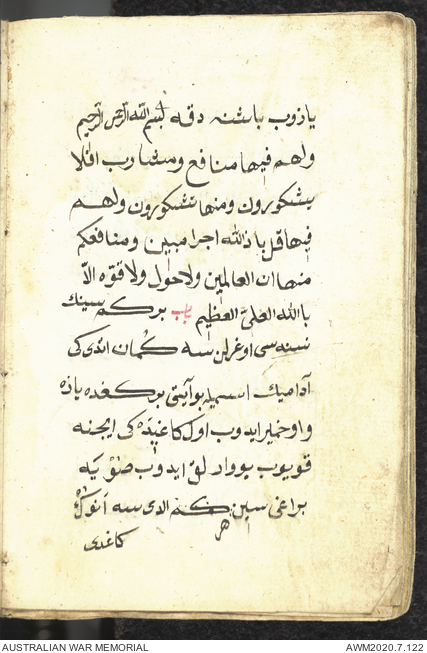 يازوب باشنه دقه بسم الله الرحمن الرحيم
ولهم فيها منافع ومشارب افلا
يشكورون ومنها تشكورون ولهم
فيها قل باذالله اجرا مبين ومنافعكم
منها ان العالمين ولا حول ولا قوه الا
باالله العلى العظيم باب بركمسينك
نسنه سى اوغرلنسه كمان اتدى كى
آدامينك اسميله بو آيتى بر كغده يازه
واوخمير ايدوب اول كاغيده كى ايجنه
قويوب يووارلق ايدوب صويه
براغى سين هر كم الدى سه آنوك
كاغدى
AUSTRALIAN WAR MEMORIAL
AWM2020.7.122